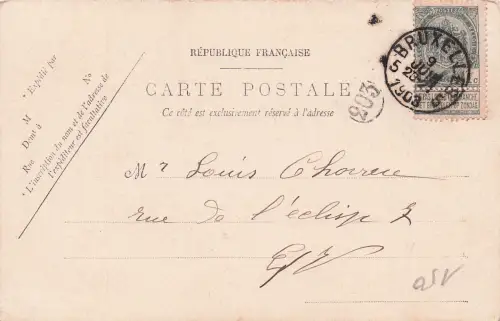 RÉPUBLIQUE FRANÇAISE
CARTE POSTALE
Ce côté est exclusivement réservé à l'adresse
* Expédié par
M
Demt à
Rue
No
* L'inscription du nom et de l'adresse de
l'expéditeur est facultative
BRUXELLES 5
9
1903
803
Mr Louis
rue de l'éclipse
E/V